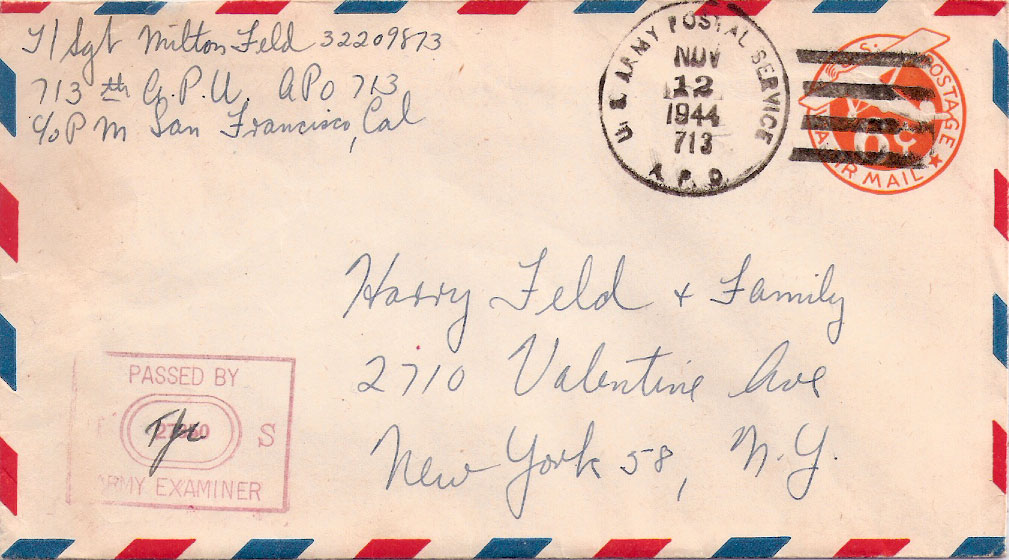 T/Sgt Milton Feld 32209873
713 th A.P.U. APO 713
c/o P M San Francisco, Cal
U. S. ARMY POSTAL SERVICE
NOV
12
1944
713
A. P. O.
U.S. POSTAGE
6¢
AIR MAIL
Harry Feld + Family
2710 Valentine Ave
New York 58, N.Y.
PASSED BY
S
ARMY EXAMINER